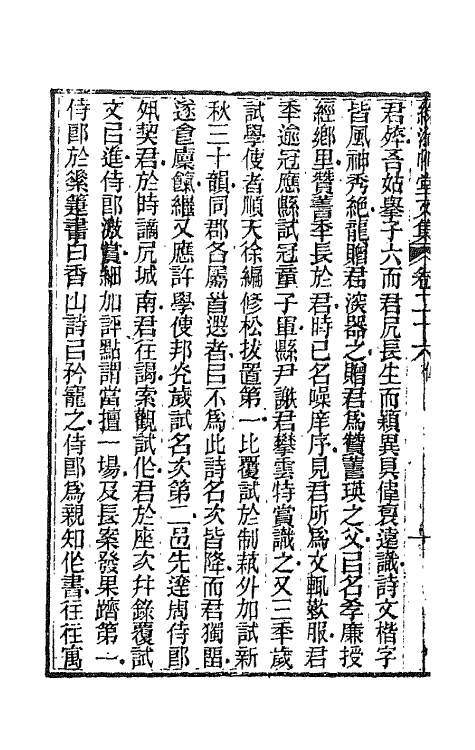 綠漪草堂文集卷二十六
君娶吾姑擧子六而君凥長生而穎異具偉裒遠識詩文楷字
皆風神秀絶龍贈君演器之贈君爲贊蓍瑛之父㠯名孝廉授
經鄕里贊蓍季長於君時已名噪庠序見君所爲文輒歎服君
秊逾冠應縣試冠童子軍縣尹謝君攀雲特賞識之又三秊歲
試學使者順天徐編修松拔置第一比覆試於制蓺外加試新
秋三十韻同郡各屬首選者㠯不爲此詩名次皆降而君獨畱
遂會廩餼繼又應許學使邦光歲試名次第二邑先達周侍郞
㚲契君於時謫凥城南君往謁索觀試作君於座次幷錄覆試
文㠯進侍郞激賞細加評點謂當擅一場及長案發果躋第一
侍郞於箑書白香山詩㠯矜寵之侍郞爲親知作書往往寓